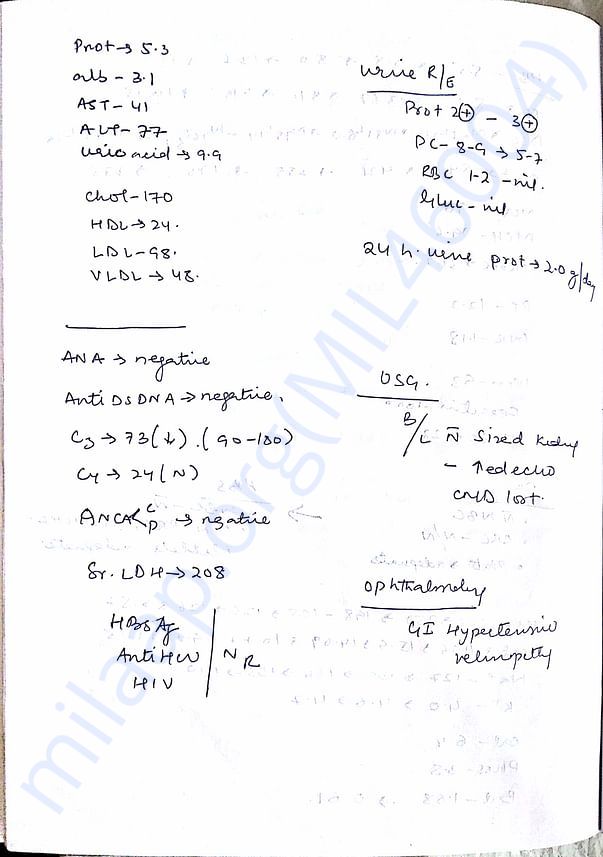 Prot → 5.3
alb - 3.1
AST - 41
ALP - 77
Uric acid → 9.9
Chol - 170
HDL → 24.
LDL - 98.
VLDL → 48.
Urine R/E
Prot 2+ - 3+
PC - 8-9 → 5-7
RBC 1-2 - nil.
Gluc - nil
24 h. urine prot → 2.0 g/day
ANA → negative
Anti DsDNA → negative.
C3 → 73 (↓). (90-180)
C4 → 24 (N)
ANCA < C P → negative
Sr. LDH → 208
HBsAg
Anti HCV
HIV
NR
USG.
B/L N̄ Sized kidney
- ↑ed echo
CMD lost.
Ophthalmology
GI Hypertensive
retinopathy
milaap.org(MIL46004)